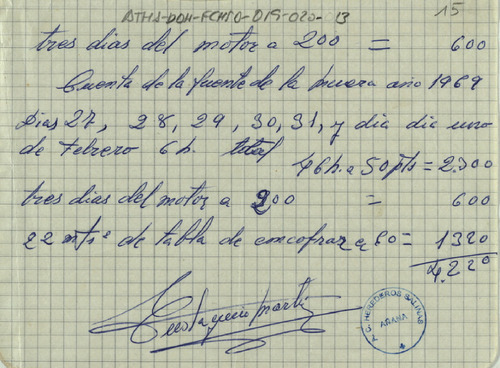 ATHA-DOH-FCMTO-015-020-13
15
tres dias del motor a 200 = 600
Cuenta de la fuente de la muera año 1969
Dias 27, 28, 29, 30, 31, y dia dia uno
de Febrero 6 h. total
46 h. a 50 pts = 2.300
tres dias del motor a 200 = 600
22 mts² de tabla de encofrar a 60 = 1320
4.220
Eustaquio Martin
P. C. HEREDEROS SALINAS
ARAÑA